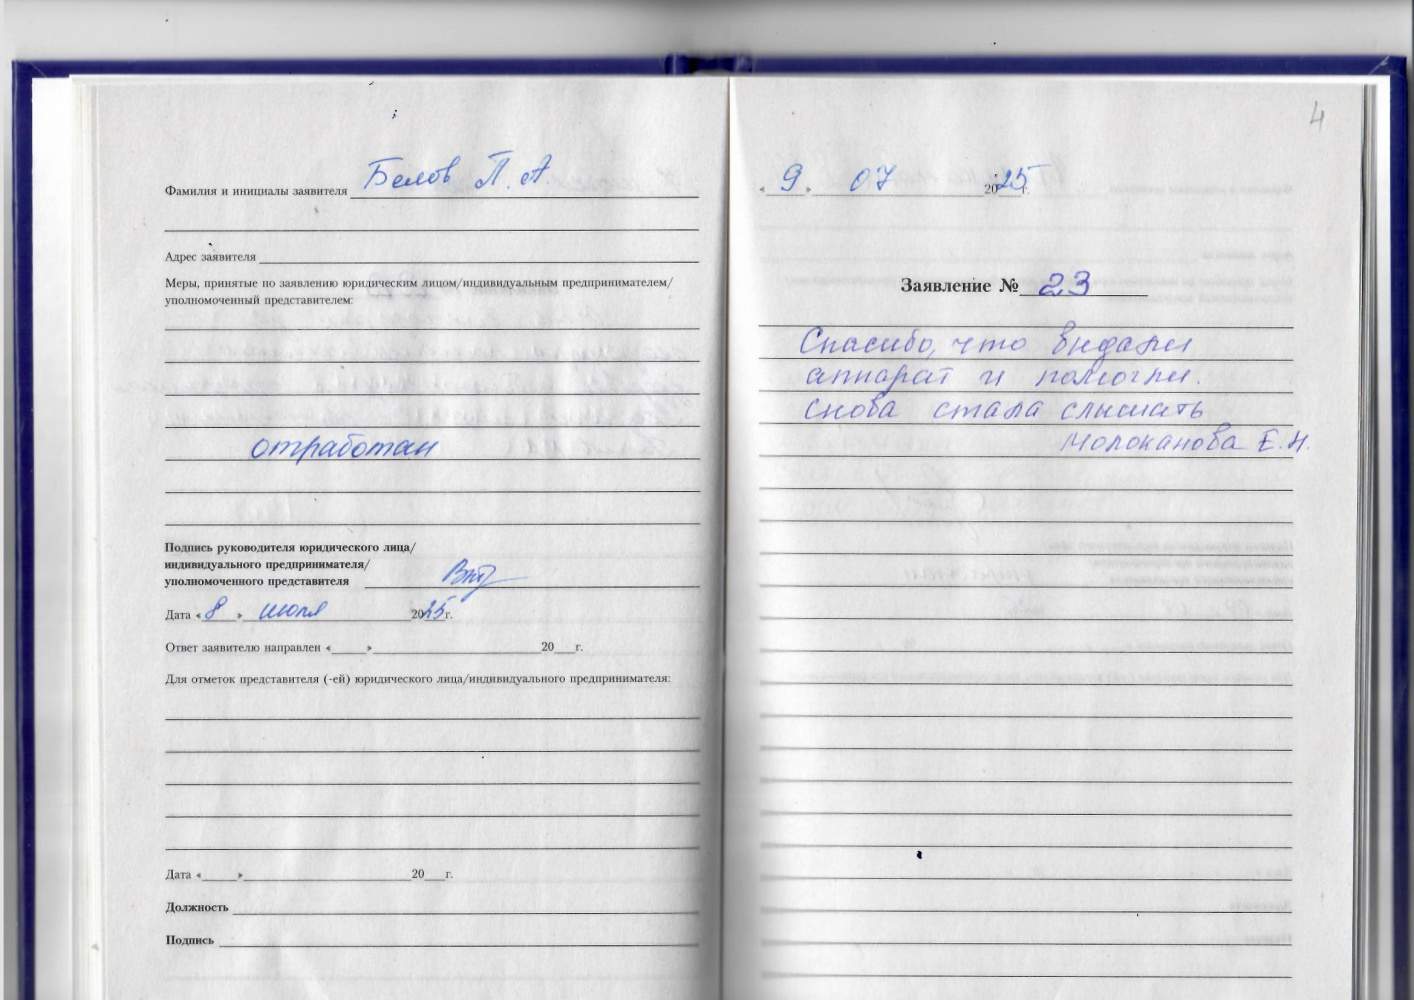 Фамилия и инициалы заявителя Белов П.А.
Адрес заявителя
Меры, принятые по заявлению юридическим лицом/индивидуальным предпринимателем/
уполномоченный представителем:
отработан
Подпись руководителя юридического лица/
индивидуального предпринимателя/
уполномоченного представителя
Дата «8» июля 2025 г.
Ответ заявителю направлен «___»___ 20__г.
Для отметок представителя (-ей) юридического лица/индивидуального предпринимателя:
Дата «___»___ 20__г.
Должность
Подпись
4
«9» 07 2025 г.
Заявление № 23
Спасибо, что выдали
аппарат и помогли.
снова стала слышать
Молоканова Е.Н.